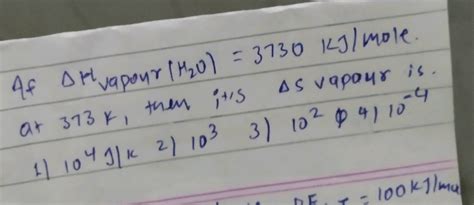 If ΔH vapour (H2O) = 3730 KJ/mole.
at 373 K, then it's ΔS vapour is.
1) 10^4 J/K 2) 10^3 3) 10^2 4) 10^-4
= 100KJ/mo